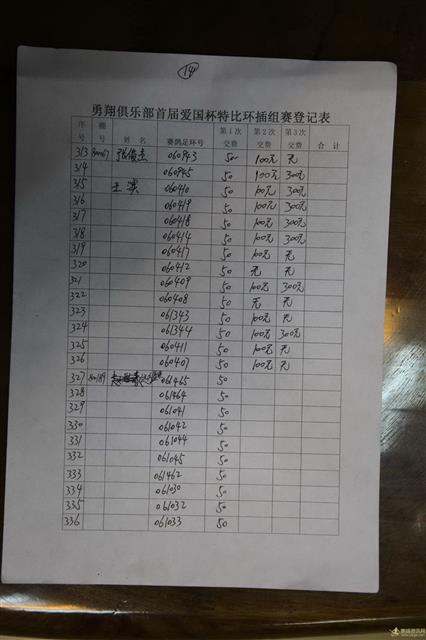 14
勇翔俱乐部首届爱国杯特比环插组赛登记表
序号 棚号 姓名 赛鸽足环号 第1次交费 第2次交费 第3次交费 合计
313 张俊杰 060943 50 100元 无
314 060945 50 100元 300元
315 060410 50 100元 300元
316 060419 50 100元 300元
317 060418 50 100元 300元
318 060414 50 100元 300元
319 060417 50 100元 无
320 060412 50 无 无
321 060409 50 100元 300元
322 060408 50 无 无
323 061343 50 100元 无
324 061344 50 100元 300元
325 060411 50 100元 无
326 060407 50 100元 无
327 061465 50
328 061464 50
329 061041 50
330 061042 50
331 061044 50
332 061045 50
333 061462 50
334 061030 50
335 061032 50
336 061033 50